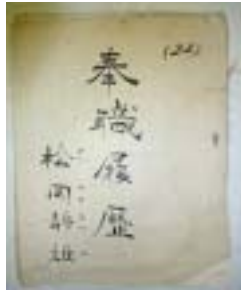 (22)
奉職履歴
松岡静雄